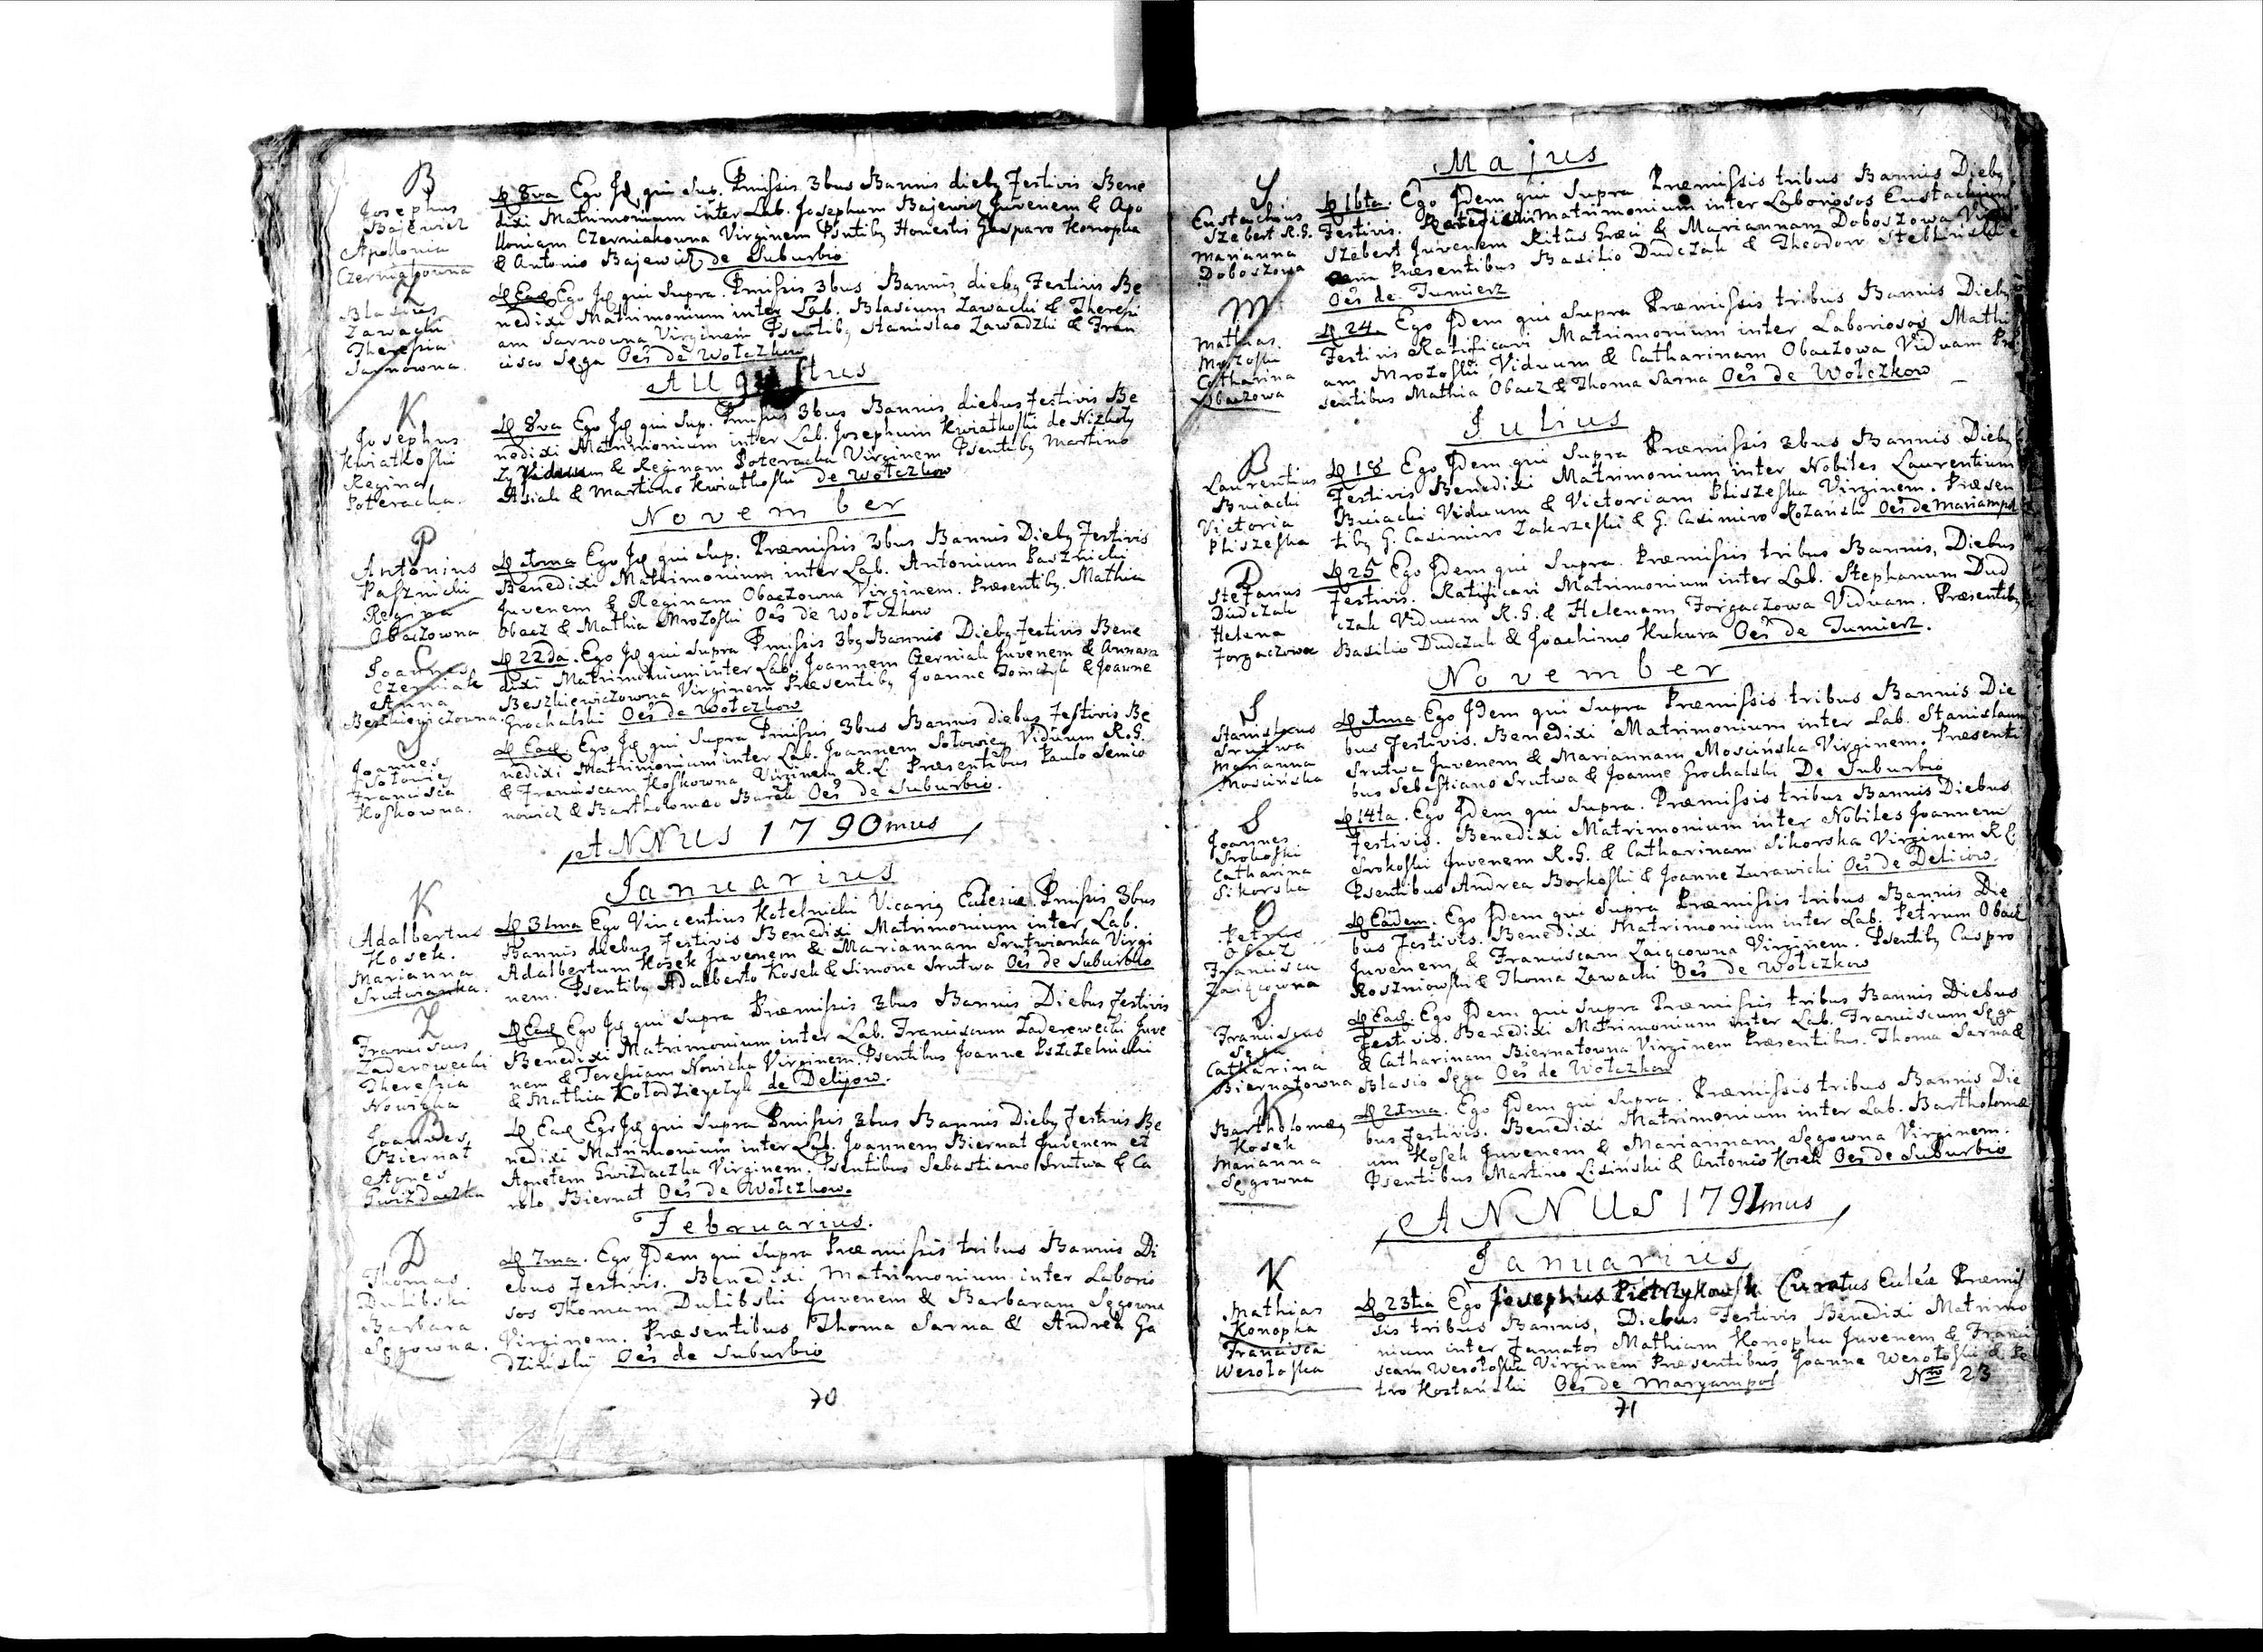 B
Josephus
Bajewicz
Apollonia
Czerniakowna
D 8va Ego Id qui Sup. Pmissis 3bus Bannis dieby Festivis Bene
dixi Matrimonium inter Lab. Josephum Bajewicz Juvenem & Apo
lloniam Czerniakowna Virginem Psntiby Honestis Gasparo Konopka
& Antonio Bajewicz de Suburbio
Z
Blasius
Zawacki
Theresia
Sarnowna
D Ead Ego Id qui Supra. Pmissis 3bus Bannis dieby Festivis Be
nedixi Matrimonium inter Lab. Blasium Zawacki & Theresi
am Sarnowna Virginem Psentiby Stanislao Zawadzki & Fran
cisco Sęga Oes de Wołczkow
Augustus
K
Josephus
Kwiatkoski
Regina
Poteracka
D 8va Ego Id qui Sup. Pmissis 3bus Bannis diebus Festivis Be
nedixi Matrimonium inter Lab. Josephum Kwiatkoski de
Viduum & Reginam Poteracka Virginem Psentiby Martino
& Martino Kwiatkoski de Wołczkow
November
P
Antonius
Pasznicki
Regina
Obaczowna
D 1ma Ego Id qui Sup. Præmissis 3bus Bannis Dieby Festivis
Benedixi Matrimonium inter Lab. Antonium Pasznicki
Juvenem & Reginam Obaczowna Virginem. Præsentiby. Mathia
Obacz & Mathia Mrozoski Oes de Wołczkow
C
Joannes
Czerniak
Anna
Beszkiewiczowna
D 22da. Ego Id qui Supra Pmissis 3by Bannis Dieby Festivis Bene
dixi Matrimonium inter Lab. Joannem Czerniak Juvenem & Annam
Beszkiewiczowna Virginem Præsentiby Joanne & Joanne
Grochalski Oes de Wołczkow
S
Joannes
Sołowiey
Francisca
Koskowna.
D Ead Ego Id qui Supra Pmissis 3bus Bannis diebus Festivis Be
nedixi Matrimonium inter Lab. Joannem Sołowiey Viduum R.G.
& Franciscam Koskowna Virginem R.L. Præsentibus Paulo Semio
nowicz & Bartholomæo Oes de Suburbio.
ANNUS 1790mus
Januarius
K
Adalbertus
Kosek.
Marianna
Srutwianka.
D 31ma Ego Vincentius Kotelnicki Vicariy Eclesiæ. Pmissis 3bus
Bannis diebus Festivis Benedixi Matrimonium inter Lab.
Adalbertum Kosek Juvenem & Mariannam Srutwianka Virgi
nem. Psentiby Adalberto Kosek & Simone Srutwa Oes de Suburbio
Z
Franciscus
Zaderewecki
Theresia
Nowicka
D Ead Ego Id qui Supra Præmissis 3bus Bannis Diebus Festivis
Benedixi Matrimonium inter Lab. Franciscum Zaderewecki Juve
nem & Teresiam Nowicka Virginem. Psentibus Joanne Pszczelnicki
& Mathia Kołodzieyczyk de Delijow.
B
Joannes
Biernat
Agnes
Gwizdaczka
D Ead Ego Id qui Supra Pmissis 3bus Bannis Dieby Festivis Be
nedixi Matrimonium inter Lab. Joannem Biernat Juvenem et
Agnetem Gwizdaczka Virginem. Psentibus Sebastiano Srutwa & Ca
rolo Biernat Oes de Wołczkow.
Februarius.
D
Thomas
Dulibski
Barbara
Sęgowna.
D 7ma. Ego Idem qui Supra Præmissis tribus Bannis Di
ebus Festivis. Benedixi Matrimonium inter Laborio
sos Thomam Dulibski Juvenem & Barbaram Sęgowna
Virginem. Præsentibus Thoma Sarna & Andrea Ga
dzinski Oes de Suburbio
70
Majus
S
Eustachius
Szebert R.G.
Marianna
Doboszowa
D 16ta. Ego Idem qui Supra Præmissis tribus Bannis Dieby
Festivis. Matrimonium inter Laboriosos Eustachium
Szebert Juvenem Ritus Græci & Mariannam Doboszowa Vidu
am Præsentibus Basilio Dudczak & Theodoro
Oes de Tumierz
M
Mathias
Mrozoski
Catharina
Obaczowa
D 24. Ego Idem qui Supra Præmissis tribus Bannis Dieby
Festivis Ratificavi Matrimonium inter Laboriosos Mathi
am Mrozoski Viduum & Catharinam Obaczowa Viduam Præ
sentibus Mathia Obacz & Thoma Sarna Oes de Wołczkow
Julius
B
Laurentius
Bniacki
Victoria
Pliszeska
D 18 Ego Idem qui Supra Præmissis 3bus Bannis Dieby
Festivis Benedixi Matrimonium inter Nobiles Laurentium
Bniacki Viduum & Victoriam Pliszeska Virginem. Præsen
tiby G. Casimiro Zakrzeski & G. Casimiro Rozanski Oes de Mariampol
D
Stefanus
Dudczak
Helena
Forgaczowa
D 25 Ego Idem qui Supra. Præmissis tribus Bannis, Diebus
Festivis. Ratificavi Matrimonium inter Lab. Stephanum Dud
czak Viduum R.G. & Helenam Forgaczowa Viduam. Præsentiby
Basilio Dudczak & Joachimo Kukura Oes de Tumierz.
November
S
Stanislaus
Srutwa
Marianna
Moscińska
D 1ma Ego Idem qui Supra Præmissis tribus Bannis Die
bus Festivis. Benedixi Matrimonium inter Lab. Stanislaum
Srutwa Juvenem & Mariannam Moscińska Virginem. Præsenti
bus Sebestiano Srutwa & Joanne Grochalski De Suburbio
S
Joannes
Srokoski
Catharina
Sikorska
D 14ta. Ego Idem qui Supra. Præmissis tribus Bannis Diebus
Festivis. Benedixi Matrimonium inter Nobiles Joannem
Srokoski Juvenem R.G. & Catharinam Sikorska Virginem R.L.
Psentibus Andrea Borkoski & Joanne Zurawicki Oes de Deliiow.
O
Petrus
Obacz
Francisca
Zaięcowna
D Eadem. Ego Idem qui Supra Præmissis tribus Bannis Die
bus Festivis. Benedixi Matrimonium inter Lab. Petrum Obacz
Juvenem & Franciscam Zaięcowna Virginem. Psentiby Caspro
Roszniowski & Thoma Zawacki Oes de Wołczkow
S
Franciscus
Sęga
Catharina
Biernatowna
D Ead. Ego Idem qui Supra Præmissis tribus Bannis Diebus
Festivis. Benedixi Matrimonium inter Lab. Franciscum Sęga
& Catharinam Biernatowna Virginem Præsentibus. Thoma Sarna &
Blasio Sęga Oes de Wołczkow
K
Bartholomæy
Kosek
Marianna
Sęgowna
D 21ma. Ego Idem qui Supra. Præmissis tribus Bannis Die
bus Festivis. Benedixi Matrimonium inter Lab. Bartholomæ
um Kosek Juvenem & Mariannam Sęgowna Virginem.
Psentibus Martino Lisiński & Antonio Kosek Oes de Suburbio
ANNUS 1791mus
Januarius
K
Mathias
Konopka
Francisca
Wesołoska
D 23tia Ego Josephus Pietrzykowski Curatus Eccleæ Præmis
sis tribus Bannis, Diebus Festivis Benedixi Matrimo
nium inter Famatos Mathiam Konopka Juvenem & Franci
scam Wesołoska Virginem Præsentibus Joanne Wesołoski & Pe
tro Kostański Oes de Maryampol
Nro 23
71